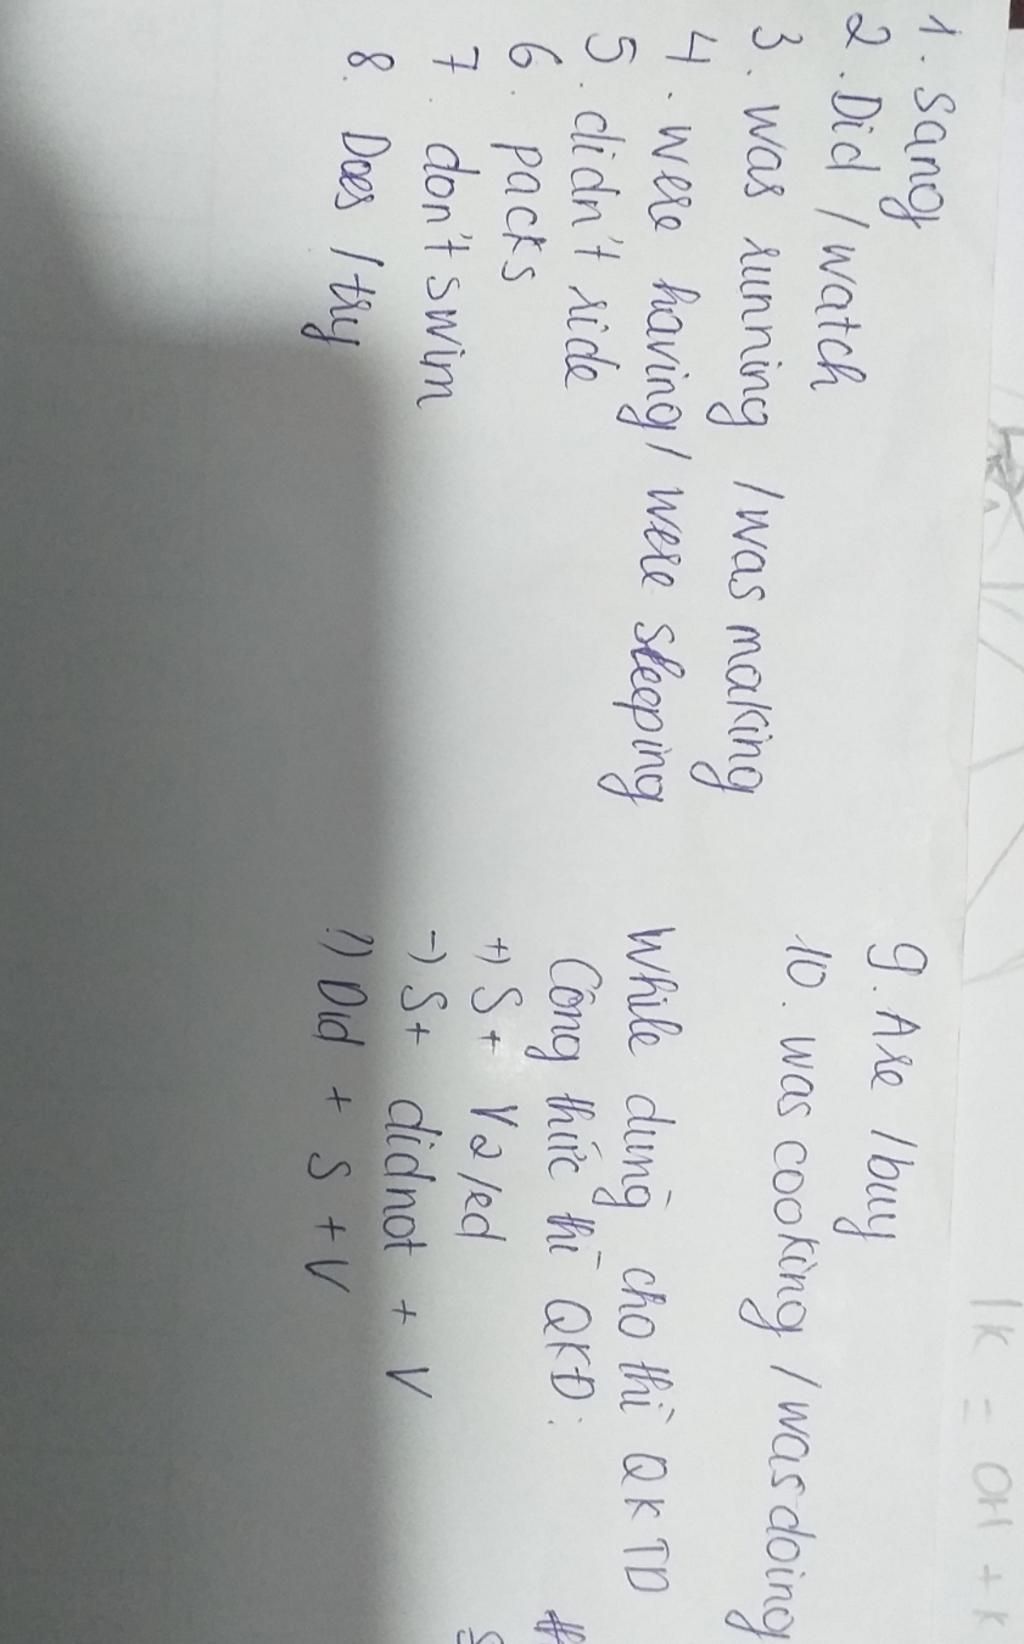 1. Sang
2. Did / watch
3. was running / was making
4. were having / were sleeping
5. didn't ride
6. packs
7. don't swim
8. Does / try
9. Are / buy
10. was cooking / was doing
While dùng cho thì QKTD
Công thức thì QKĐ:
+) S + V2/ed
-) S + did not + V
?) Did + S + V
1K = OH + K